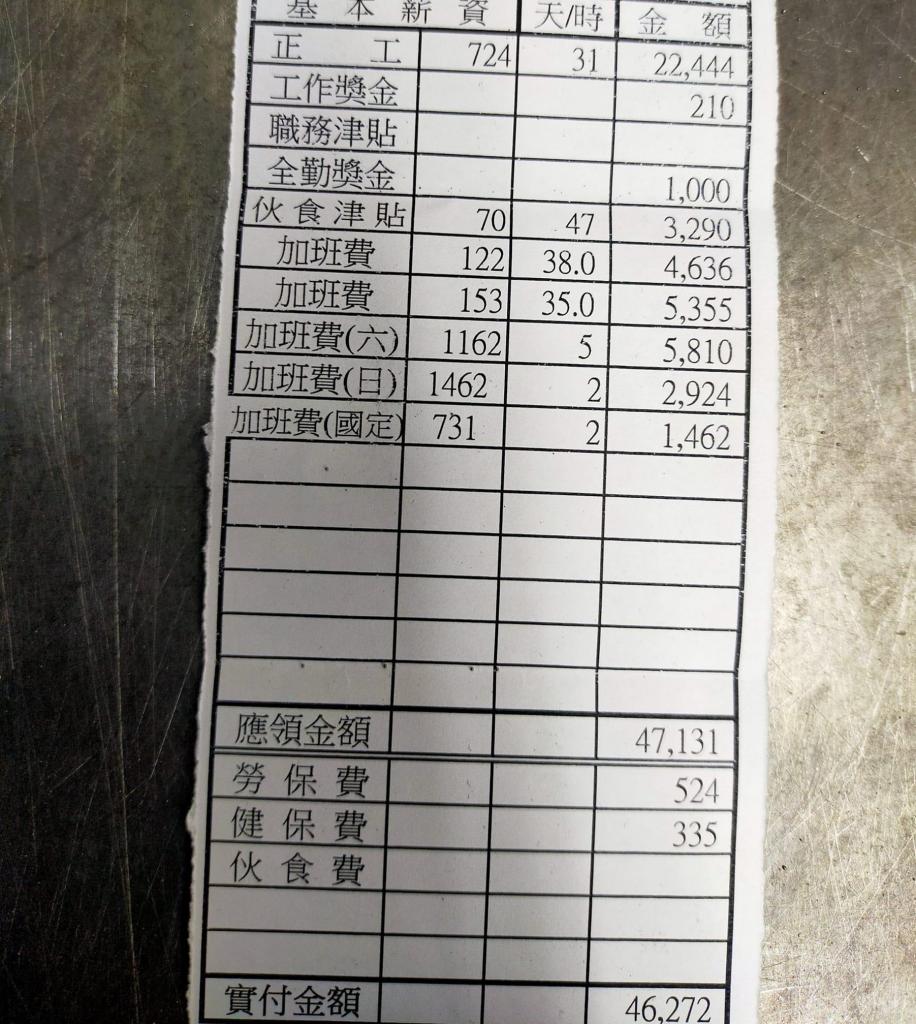 基本薪資 天/時 金額
正工 724 31 22,444
工作獎金 210
職務津貼
全勤獎金 1,000
伙食津貼 70 47 3,290
加班費 122 38.0 4,636
加班費 153 35.0 5,355
加班費(六) 1162 5 5,810
加班費(日) 1462 2 2,924
加班費(國定) 731 2 1,462
應領金額 47,131
勞保費 524
健保費 335
伙食費
實付金額 46,272